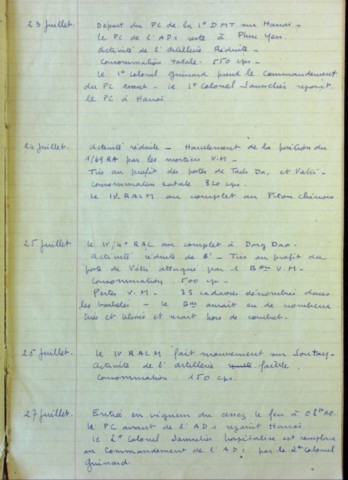 23 juillet. Départ du PC de la 1° DMT sur Hanoi -
le PC de l'AD1 reste à Phuc Yen.
Activité de l'Artillerie Réduite -
Consommation totale : 550 cps.
le 1° Colonel Guinard prend le Commandement
du PC avant - le 1° Colonel rejoint
le PC à Hanoi
24 juillet. Activité réduite - Harcèlement de la position du
1/69 RA par les mortiers V.M -
Tirs au profit des postes de et Vatri -
consommation totale 320 cps.
le IV RALM au complet au Piton Chinois
25 juillet. le IV/4° RAC au complet à Dong Dao.
Activité réduite de l' - Tirs au profit du
poste de attaqué par 1 Bon V.M -
Consommation 500 cps -
Pertes V.M - 35 cadavres dénombrés dans
les - le Bon aurait eu de nombreux
tués et blessés et serait hors de combat.
26 juillet. le IV RALM fait mouvement sur Sontay -
Activité de l'artillerie faible.
Consommation 150 cps.
27 juillet. Entrée en vigueur du cessez le feu à 08h00.
le PC avant de l'AD1 rejoint Hanoi
le 2° Colonel hospitalisé est remplacé
au Commandement de l'AD1 par le 2° Colonel
Guinard